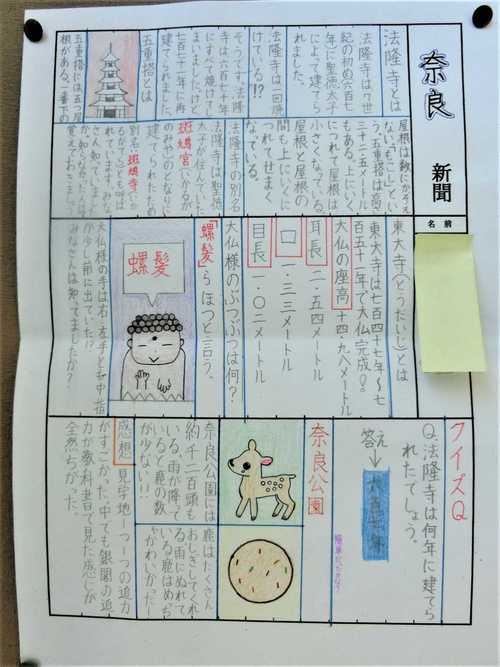 奈良
新聞
名前
法隆寺とは
法隆寺は7世
紀の初め六百七
年に聖徳太子
によって建てら
れました。
法隆寺は一回焼
けている!?
そうです。法隆
寺は六百七十年
にすべて焼けてし
まいましたけど
七百十一年に再
建てられました
五重搭とは
五重搭には五つ屋
根がある。一番下の
屋根は数にかぞえ
う、五重搭は高さ
三十二五メートル
もある。上にいく
につれて屋根は
小さくなっている
屋根と屋根の
間も上にいくに
つれてせまく
なっている。
法隆寺の別名
法隆寺は聖徳
太子が住んでいた
斑鳩宮(いかるが
のみや)のとなりに
建てられたため
別名、斑鳩寺(いか
るがでら)とも呼ば
れています。みな
さん知っていました
か?知らなかった人は
東大寺(とうだいじ)とは
東大寺は七百四十七年〜七
百五十二年で大仏完成。
大仏の座高十四・九八メートル
耳長二・五四メートル
口一・三三メートル
目長一・〇二メートル
大仏様のぶつぶつは何?
「螺髪」らほつと言う。
螺髪
大仏様の手は右・左手とも中指
が少し前に出ていた!?
みなさんは知ってましたか?
クイズQ
Q.法隆寺は何年に建てら
れたでしょう。
答え→
奈良公園
奈良公園には
約千二百頭も
いる。雨が降って
いると鹿の数
が少ない!!
鹿はたくさん
おじぎしてくれ
る雨にぬれて
いる鹿はめちゃ
かわいかった
感想
見学地一つ一つの迫力
がすごかった。中でも銀閣の迫
力が教科書で見た感じが
全然ちがった。